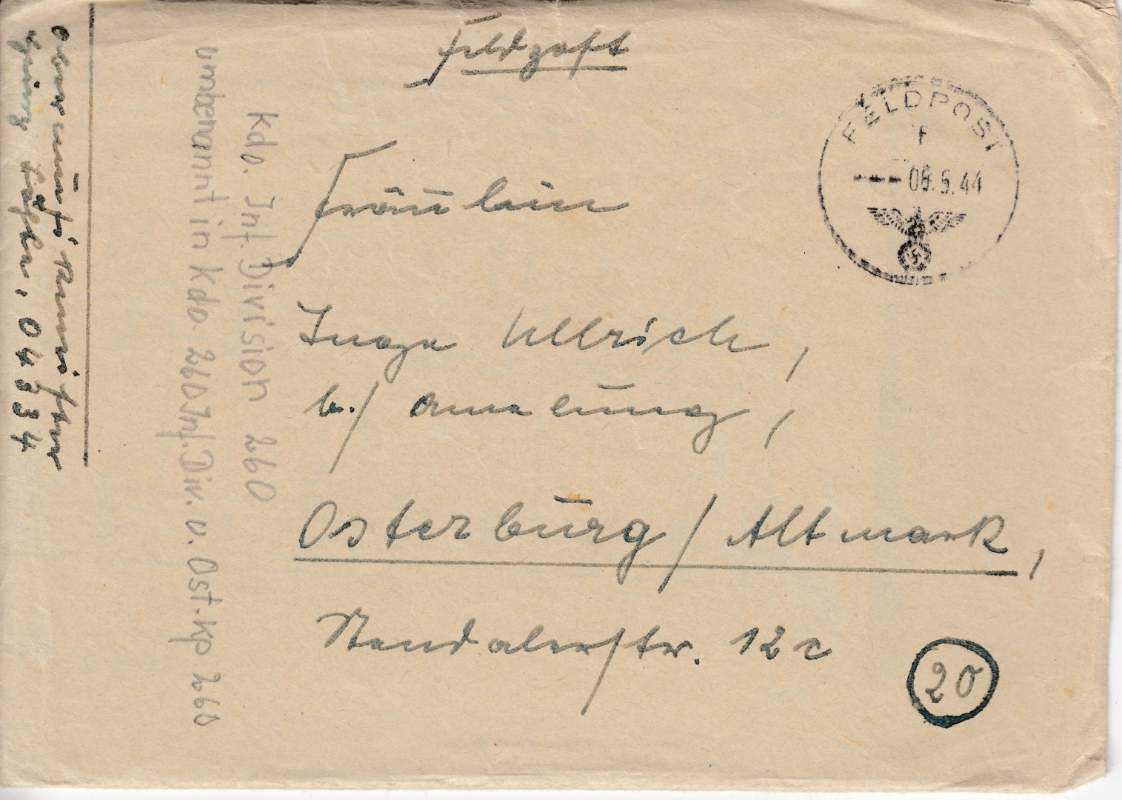 Feldpost
FELDPOST
F
---06.5.44
Fräulein
Inge Ullrich,
b./ Amelung,
Osterburg / Altmark,
Stendalerstr. 12c
20
Kdo. Inf. Division 260
umbenannt in Kdo. 260 Inf. Div. u. Ost. Kp 260
04334